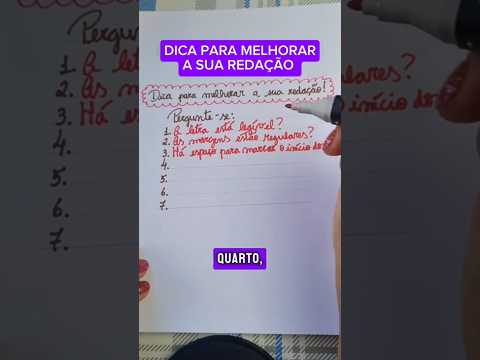 DICA PARA MELHORAR
A SUA REDAÇÃO
Dica para melhorar a sua redação!
Pergunte-se:
1. A letra está legível?
2. As margens estão regulares?
3. Há espaço para marcar o início do
4.
5.
6.
7.
QUARTO,